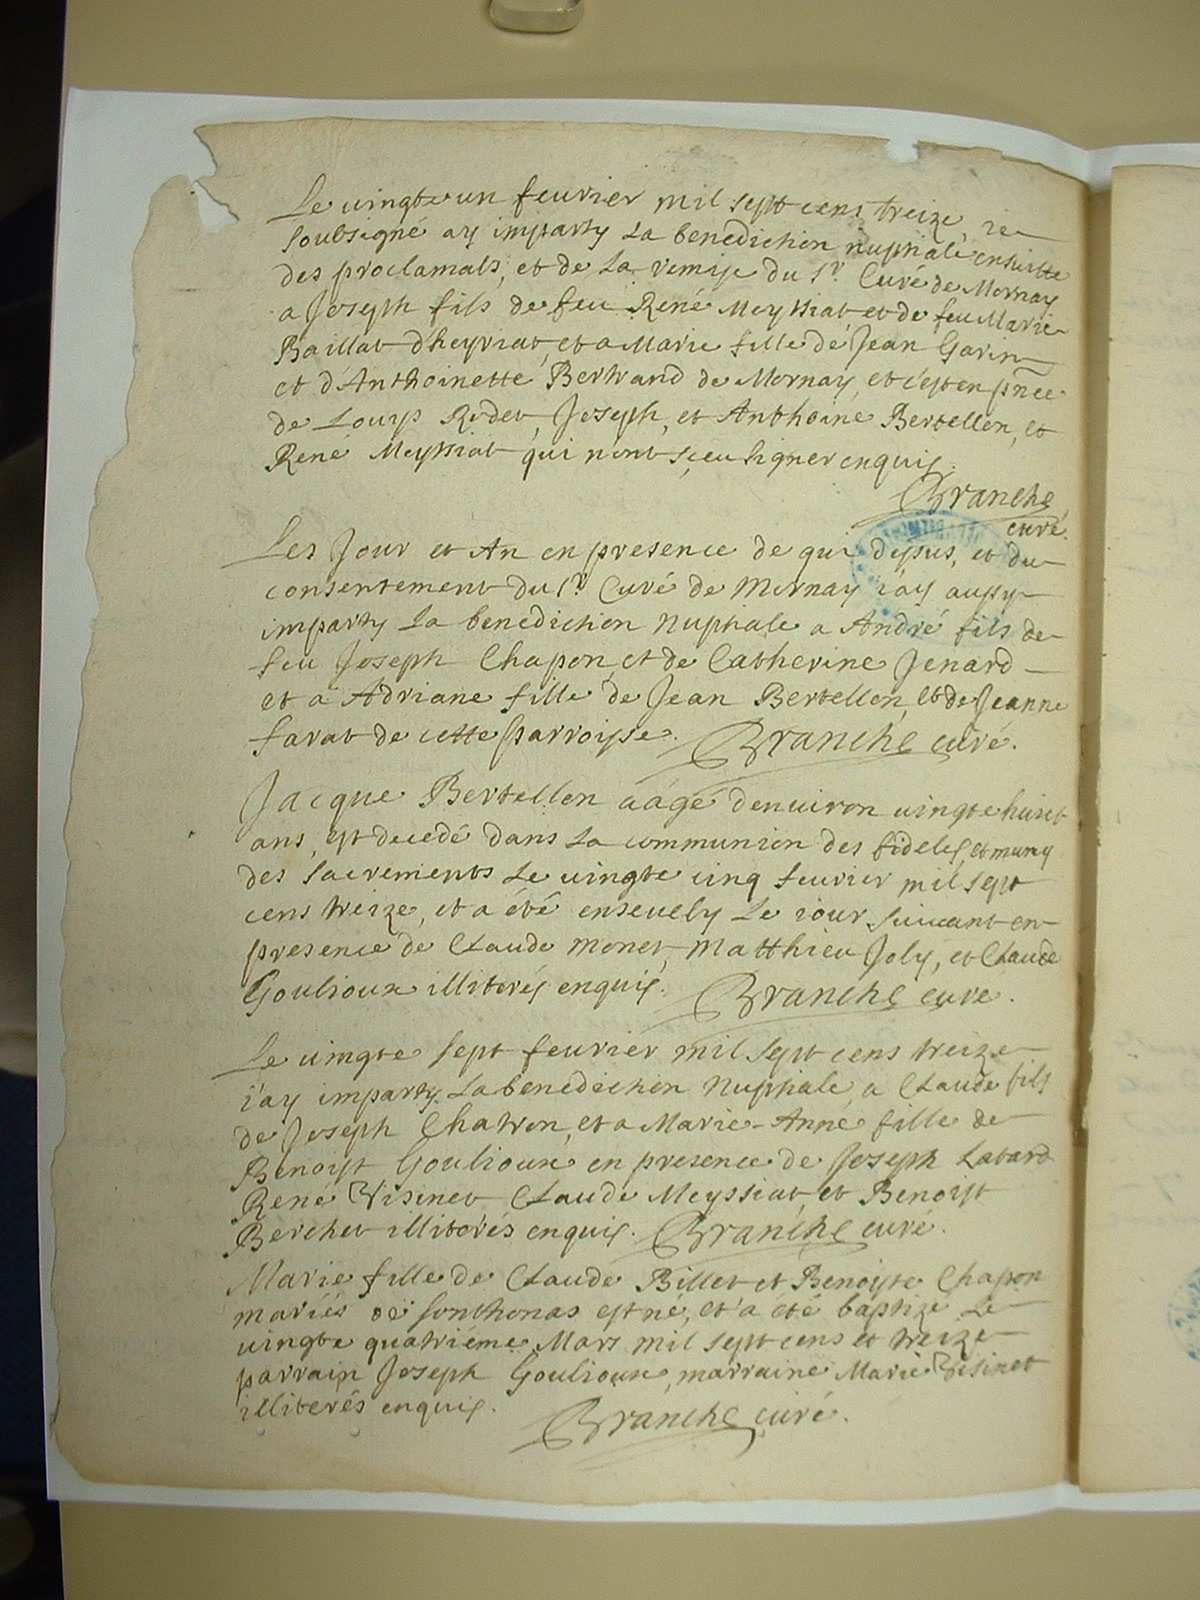 Le vingte un feurier mil sept cens treize, ie
soubsigné ay imparty La benediction nuptiale ensuitte
des proclamats, et de La remise du Sr. Curé de Mornay
a Joseph fils de feu René Meyssiat, et de feu Marie
Baillat d'heyriat, et a Marie fille de Jean Garin
et d'Anthoinette Bertrand de Mornay, et c'est en pnce
de Louys Rodet, Joseph, et Anthoine Bertellon, et
René Meyssiat qui n'ont sceu signer enquis.
Branche
curé.
Les Jour et An en presence de qui dessus, et du
consentement du Sr. Curé de Mornay i'ay aussy
imparty La benediction Nuptiale a André fils de
feu Joseph Chapon, et de Catherine Jenard
et a Adriane fille de Jean Bertellon, et de Jeanne
farat de cette parroisse. Branche curé.
Jacque Bertellon aagé d'enuiron uingte huict
ans, est decedé dans La communion des fideles, et muny
des Sacrements Le uingte cinq feurier mil sept
cens treize, et a été enseuely Le iour suiuant en
presence de Claude monet, Matthieu Joly, et Claude
Goulioux illiterés enquis. Branche curé.
Le uingte sept feurier mil sept cens treize
i'ay imparty La benediction Nuptiale, a Claude fils
de Joseph Chatron, et a Marie-Anne fille de
Benoist Goulioux en presence de Joseph Labard
René Visinet Claude Meyssiat, et Benoist
Berchet illiterés enquis. Branche curé.
Marie fille de Claude Billet et Benoiste Chapon
mariés de Sonthonas est né, et a été baptize Le
uingte quatriéme Mars mil sept cens et treize
parrain Joseph Goulioux, marraine Marie Visinet
illiterés enquis. Branche curé.